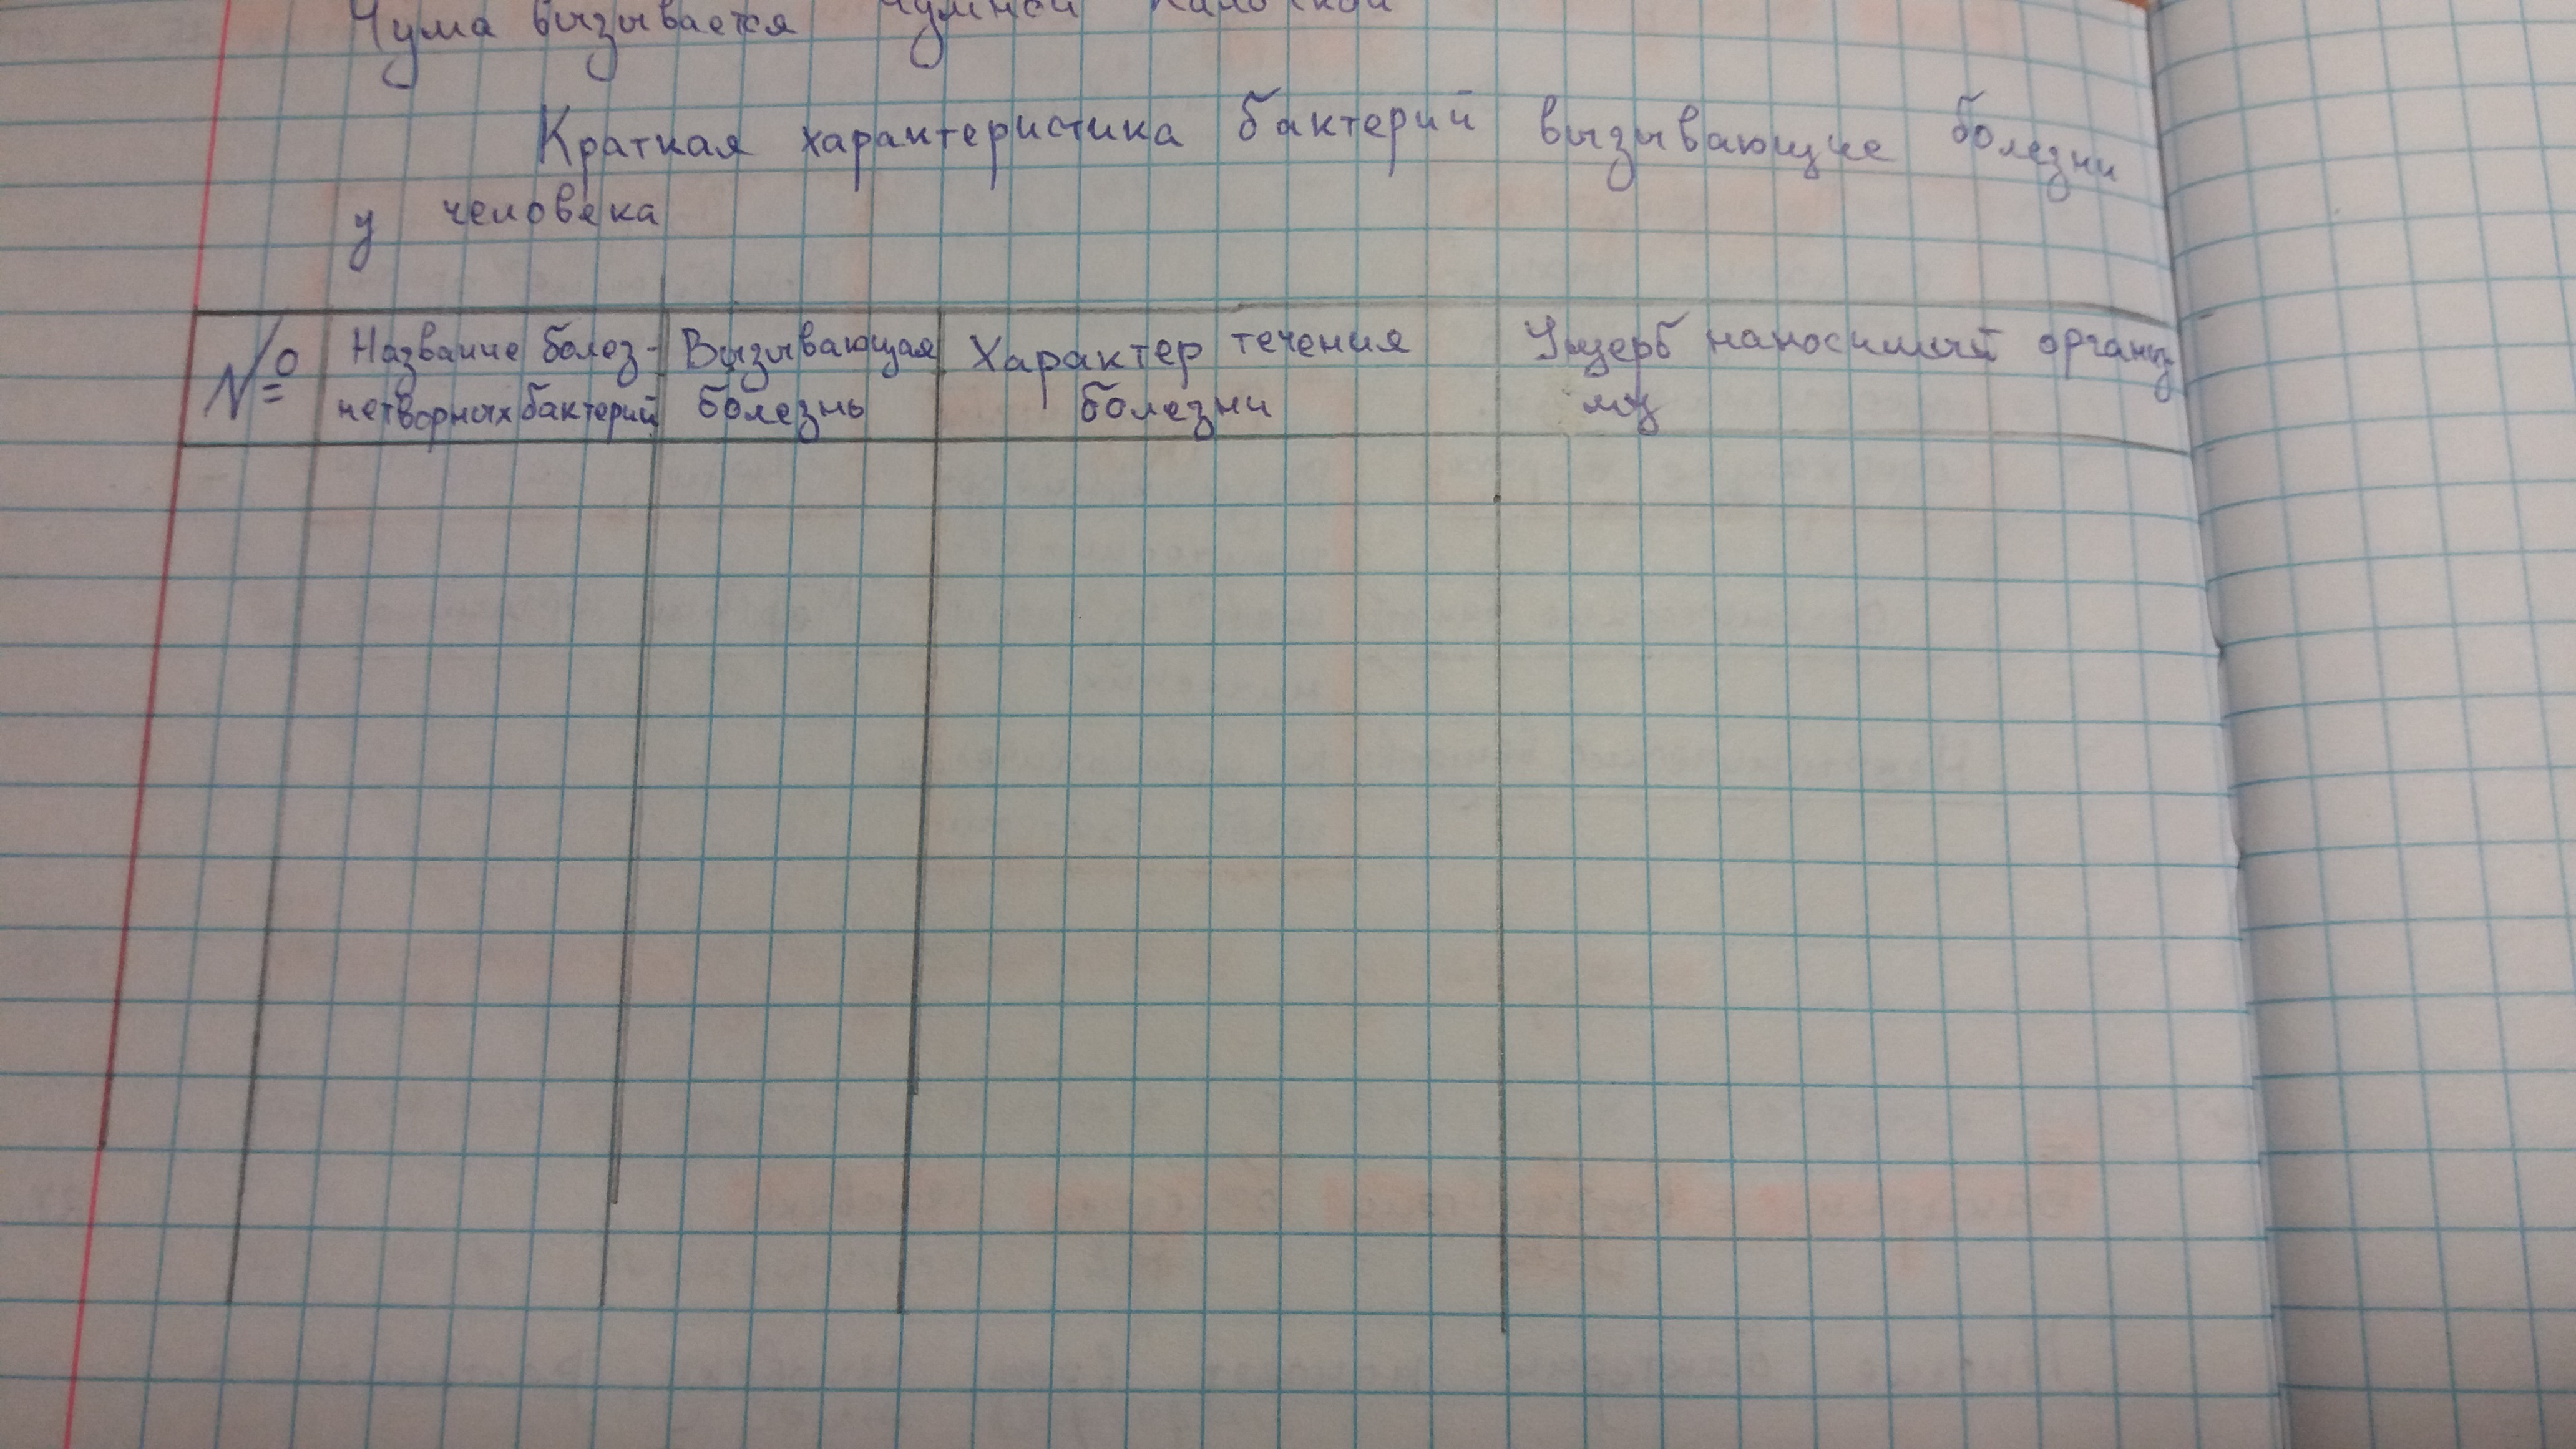 Чума вызывается чумной палочкой
Краткая характеристика бактерий вызывающие болезни
у человека
№ Название болез- Вызывающая Характер течения Ущерб наносимый организ
нетворных бактерий болезнь болезни му